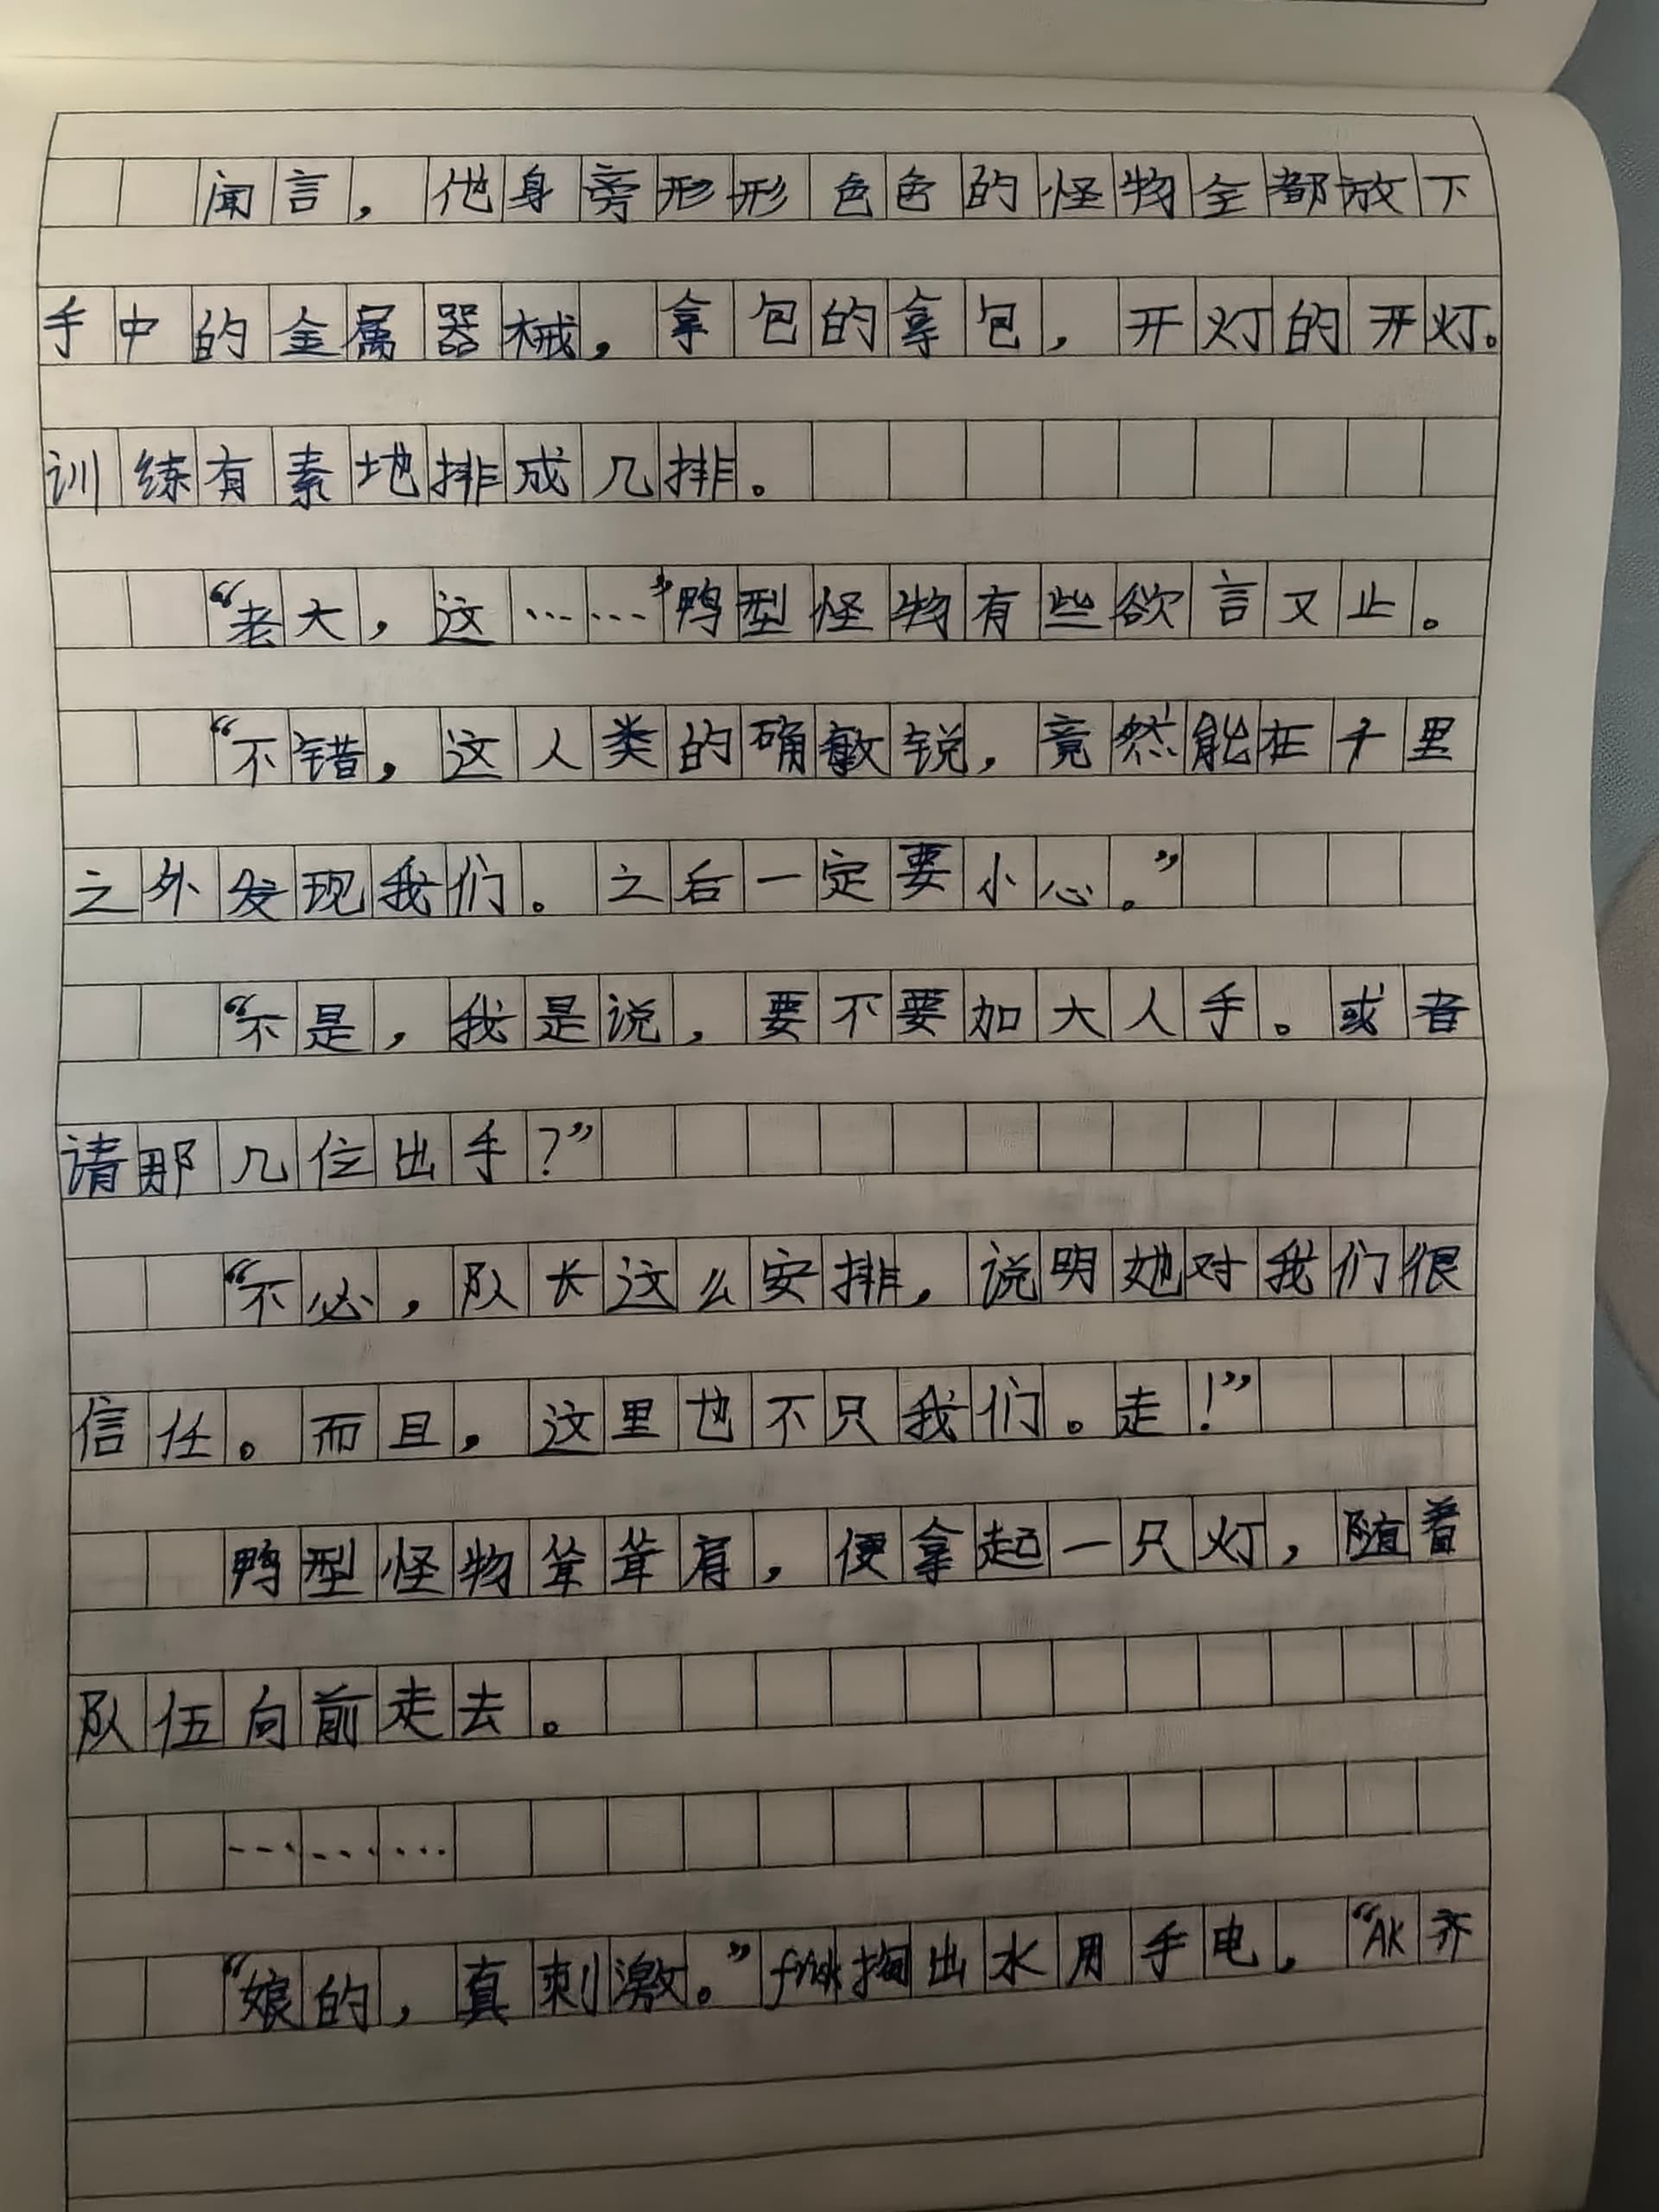 闻言，他身旁形形色色的怪物全都放下
手中的金属器械，拿包的拿包，开灯的开灯。
训练有素地排成几排。
“老大，这……”鸭型怪物有些欲言又止。
“不错，这人类的确敏锐，竟然能在千里
之外发现我们。之后一定要小心。”
“不是，我是说，要不要加大人手。或者
请那几位出手？”
“不必，队长这么安排，说明她对我们很
信任。而且，这里也不只我们。走！”
鸭型怪物耸耸肩，便拿起一只灯，随着
队伍向前走去。
………
“娘的，真刺激。”掏出水用手电，“AK齐